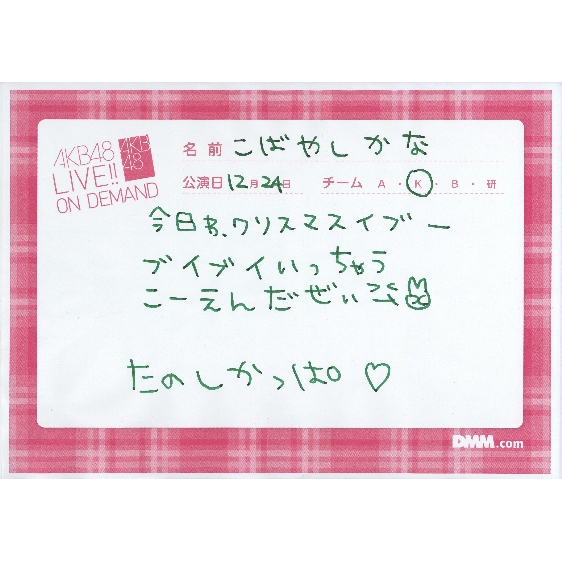 AKB48
LIVE!!
ON DEMAND
AKB
48
名前 こばやしかな
公演日 12月24日 チーム A・K・B・研
今日わ、クリスマスイブー
ブイブイいっちゃう
こーえんだぜぃ
たのしかっぱ ♡
DMM.com